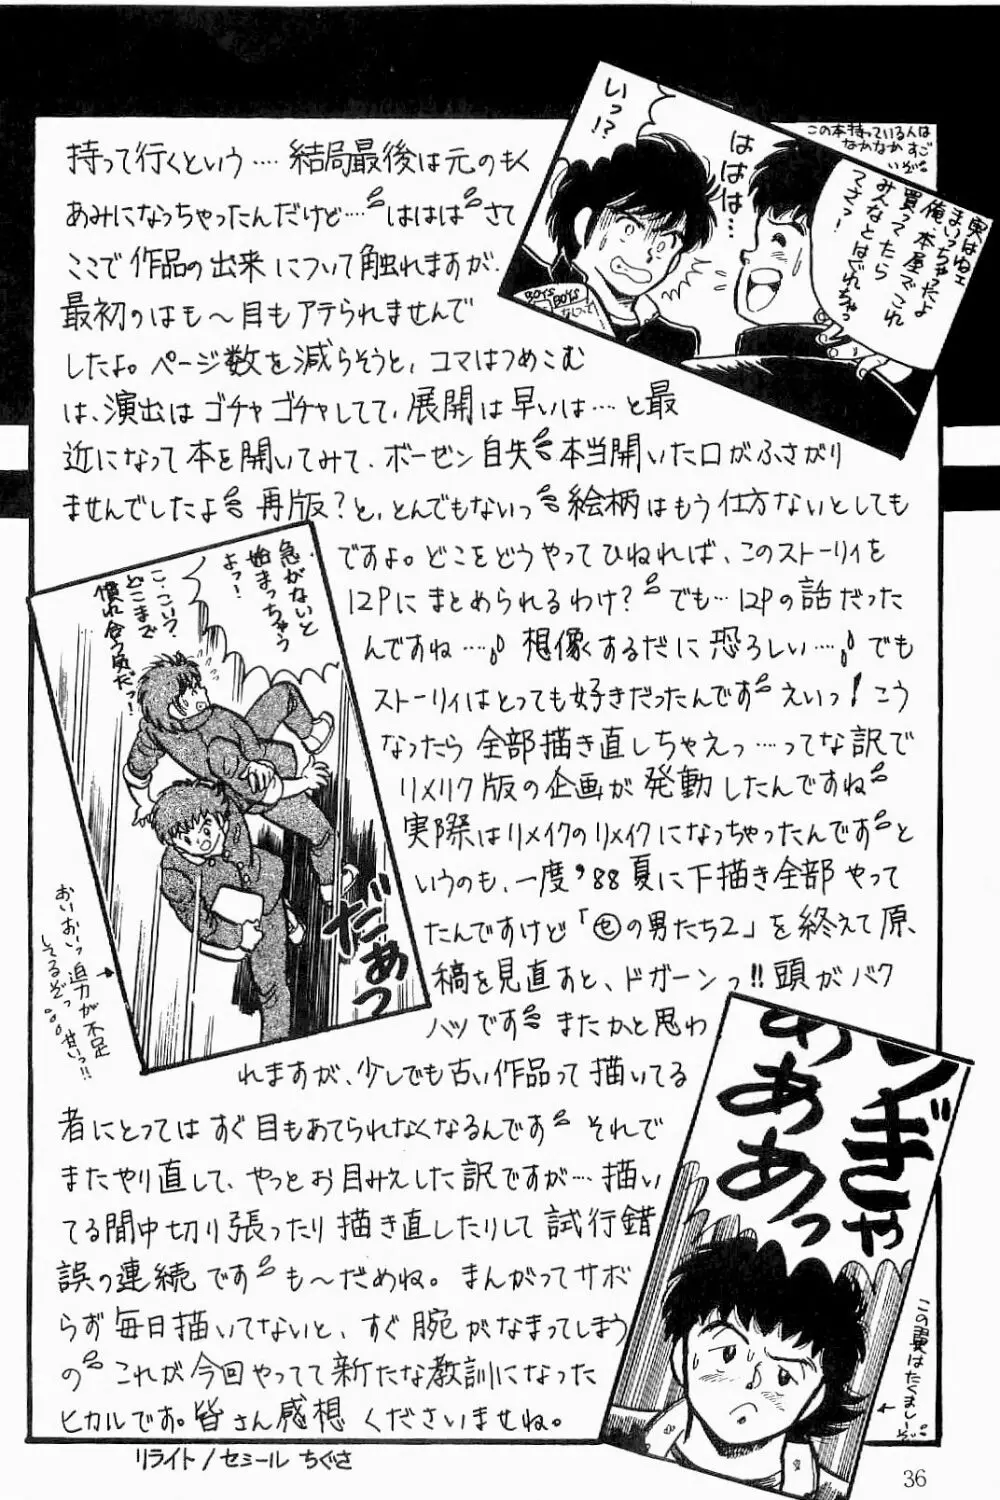 持って行くという‥‥結局最後は元のもく
あみになっちゃったんだけど‥‥ははは さて
ここで作品の出来について触れますが、
最初のはも〜目もアテられませんで
したよ。ページ数を減らそうと、コマはつめこむ
は、演出はゴチャゴチャしてて、展開は早いは‥‥と最
近になって本を開いてみて、ボーゼン自失 本当開いた口がふさがり
ませんでしたよ 再版？と、とんでもないっ 絵柄はもう仕方ないとしても
ですよ。どこをどうやってひねれば、このストーリィを
12Pにまとめられるわけ？ でも‥‥12Pの話だった
んですね‥‥ 想像するだに恐ろしい‥‥ でも
ストーリィはとっても好きだったんです えいっ！こう
なったら全部描き直しちゃえっ‥‥ってな訳で
リメイク版の企画が発動したんですね
実際はリメイクのリメイクになっちゃったんです と
いうのも、一度'88夏に下描き全部やって
たんですけど「㋲の男たち2」を終えて原
稿を見直すと、ドガーンっ!!頭がバク
ハツです またかと思わ
れますが、少しでも古い作品って描いてる
者にとってはすぐ目もあてられなくなるんです それで
またやり直して、やっとお目みえした訳ですが‥‥描い
てる間中切り張ったり描き直したりして試行錯
誤の連続です も〜だめね。まんがってサボ
らず毎日描いてないと、すぐ腕がなまってしまう
の これが今回やってて新たな教訓になった
ヒカルです。皆さん感想くださいませね。
リライト/セミール ちぐさ
この本持っている人は
なかなかすご
いぞ
実はねェ
まいっちゃったよ
俺、本屋でこれ
買ってたら
みんなとはぐれちゃっ
てさっ！
ははは…
いっ!?
BOYS
BOYS
急がないと
始まっちゃう
よっ！
こ、こいつ?
どこまで
慣れ合う気だっ！
だあっ
おいおいっ迫力が不足
してるぞっ せいっ!!
ンぎゃ
ああああっ
この翼はたくましーぞ
36